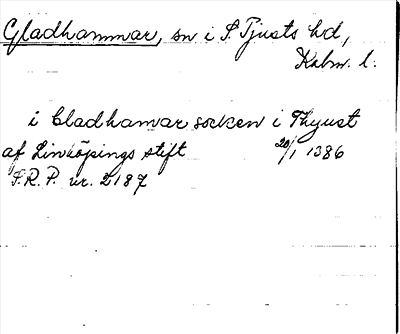 Gladhammar, sn i S. Tjusts hd,
Kalm. l.
i Gladhamar socken i Thyust
af Linköpings stift 20/1 1386
S.R.P. nr. 2187